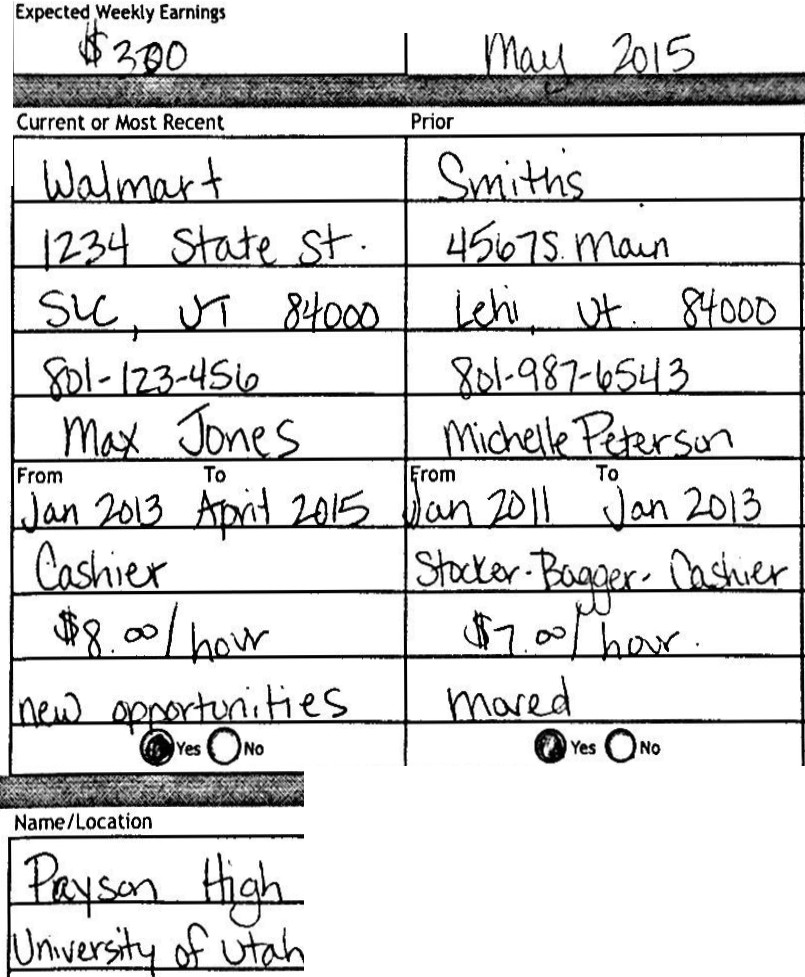 Expected Weekly Earnings
$300 May 2015
Current or Most Recent Prior
Walmart Smith's
1234 State St. 4567 S. Main
SLC, UT 84000 Lehi, Ut. 84000
801-123-456 801-987-6543
Max Jones Michelle Peterson
From To From To
Jan 2013 April 2015 Jan 2011 Jan 2013
Cashier Stocker-Bagger-Cashier
$8.00/hour $7.00/hour.
new opportunities moved
Yes No Yes No
Name/Location
Payson High
University of Utah